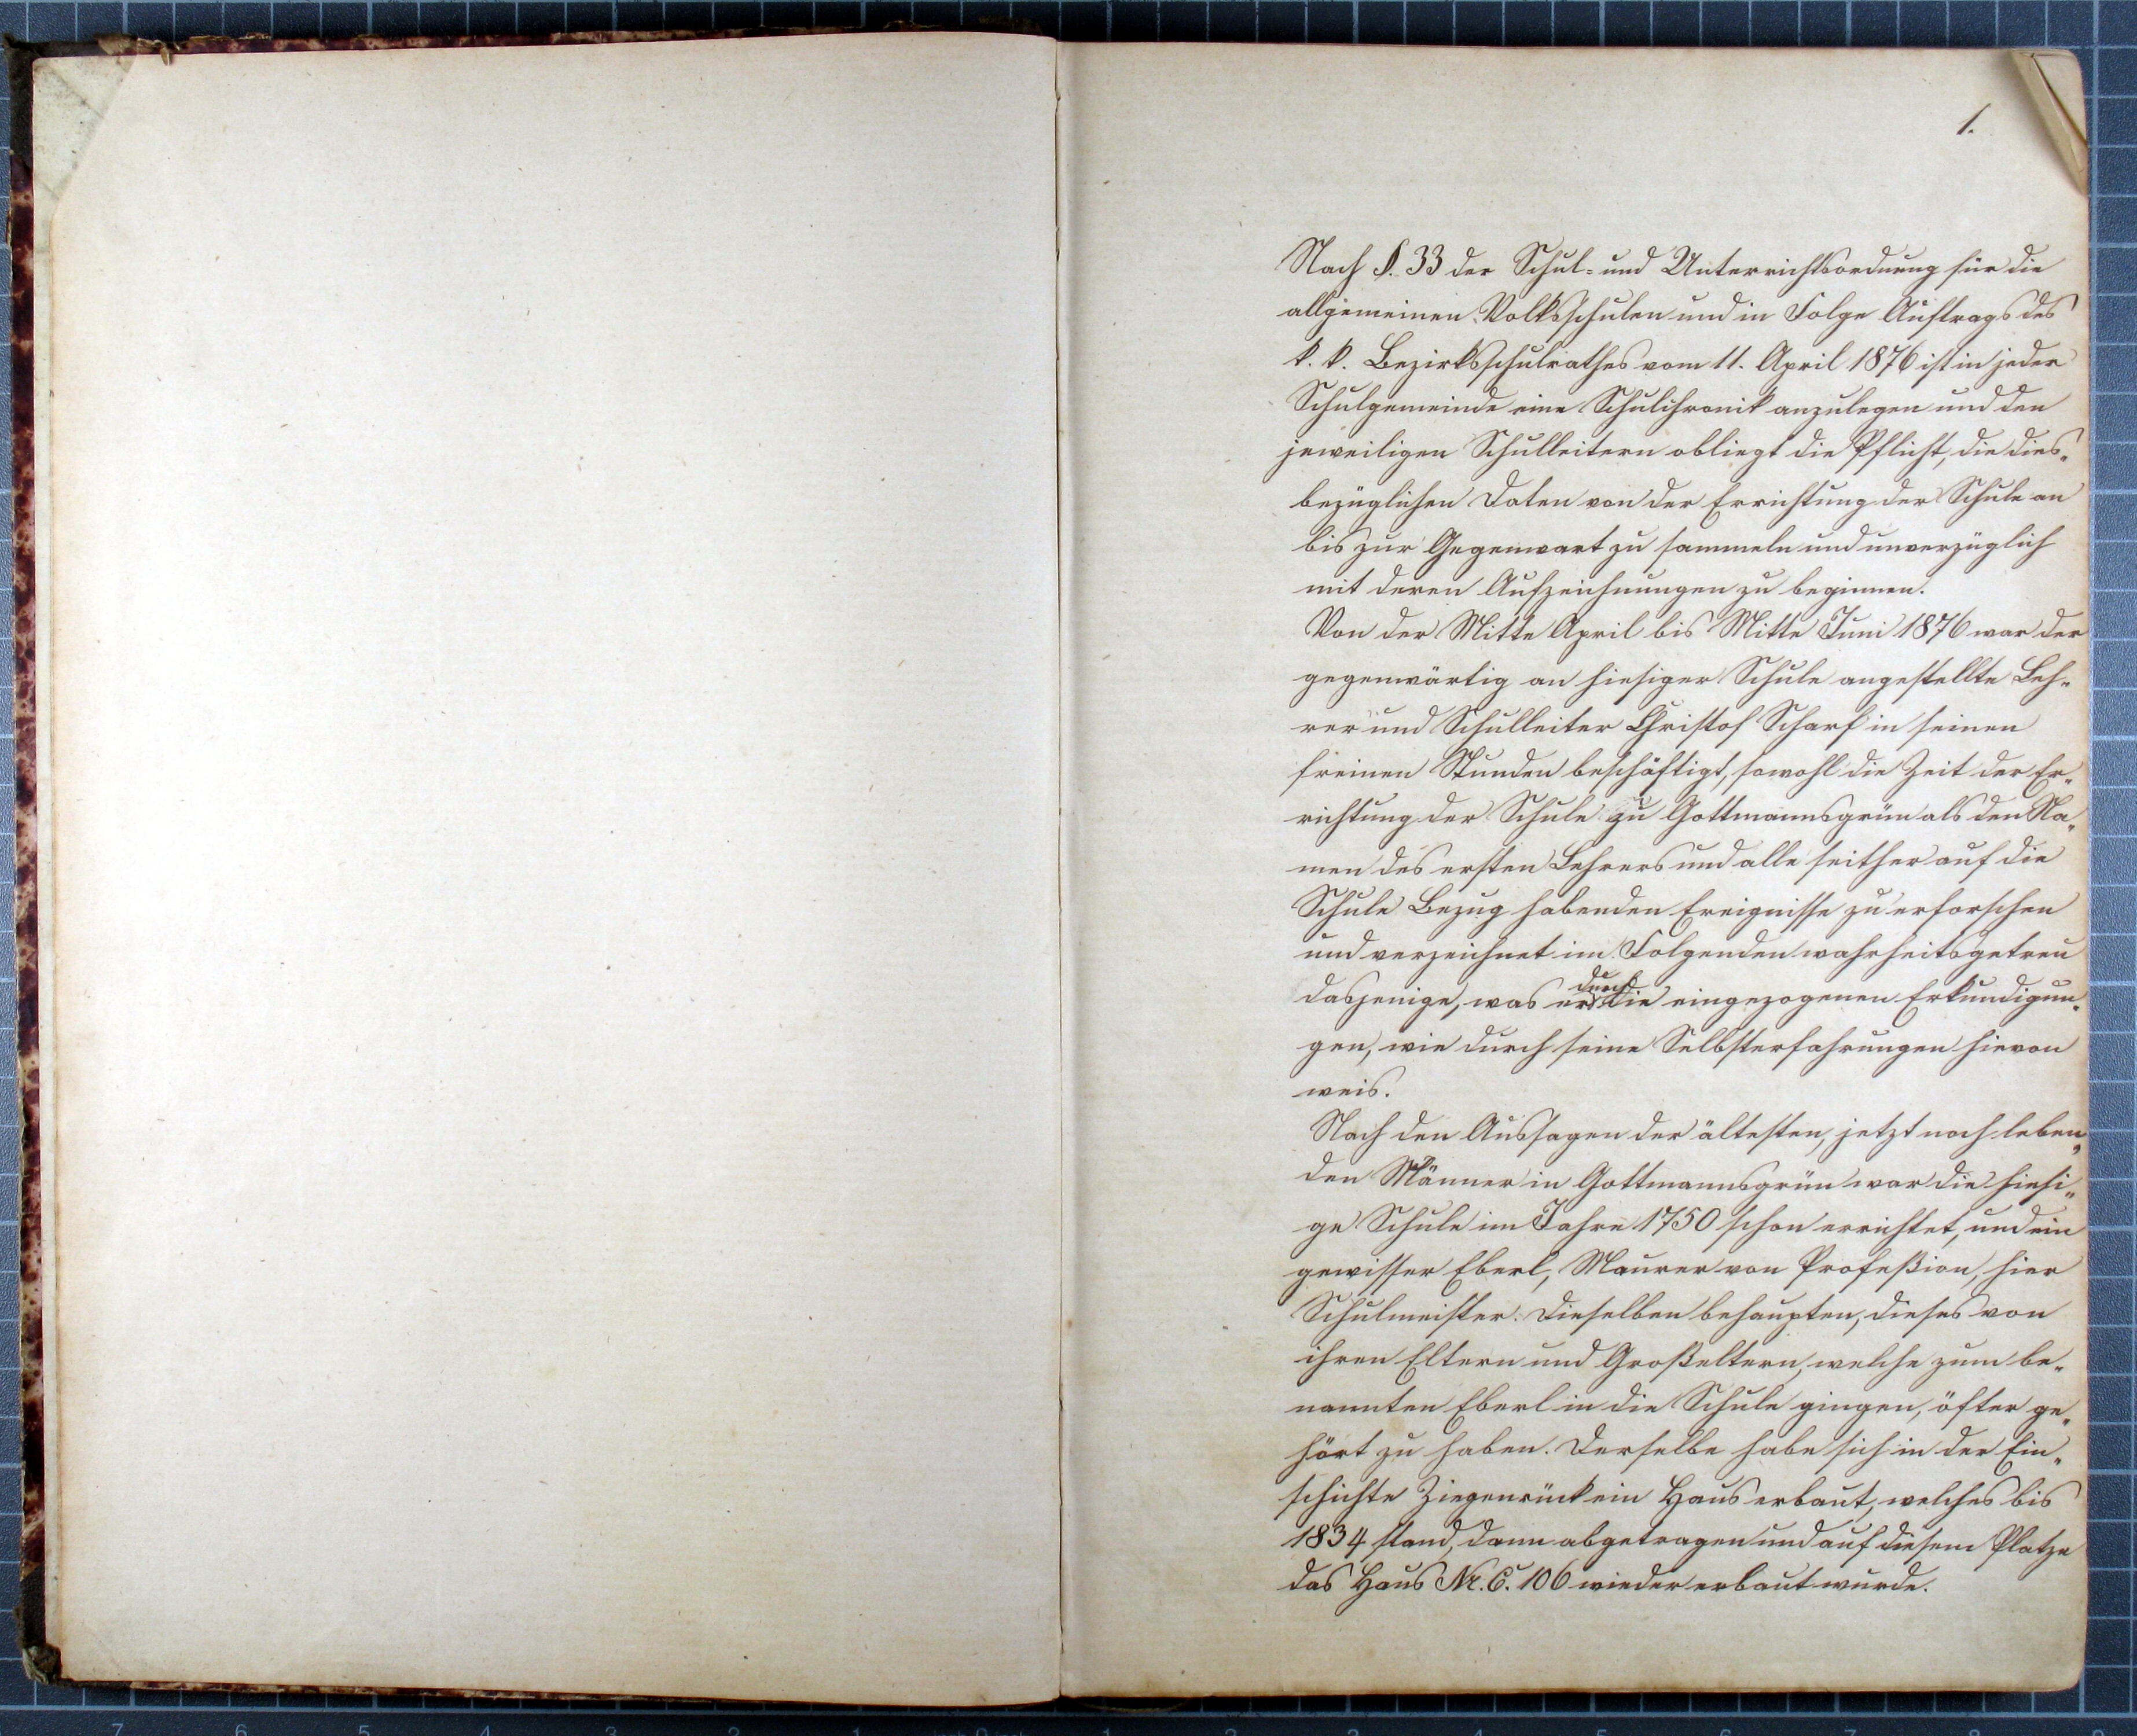 1.
Nach §. 33 der Schul- und Unterrichtsordnung für die
allgemeinen Volksschulen und in Folge Auftrags des
k. k. Bezirksschulrathes vom 11. April 1876 ist in jeder
Schulgemeinde eine Schulchronik anzulegen und den
jeweiligen Schulleitern obliegt die Pflicht, die dies-
bezüglichen Daten von der Errichtung der Schule an
bis zur Gegenwart zu sammeln und unverzüglich
mit deren Aufzeichnungen zu beginnen.
Von der Mitte April bis Mitte Juni 1876 war der
gegenwärtig an hiesiger Schule angestellte Leh-
rer und Schulleiter Christof Scharf in seinen
freinen Stunden beschäftigt, sowohl die Zeit der Er-
richtung der Schule zu Gottmannsgrün als den Na-
men des ersten Lehrers und alle seither auf die
Schule Bezug habenden Ereignisse zu erforschen
und verzeichnet im Folgenden wahrheitsgetreu
dasjenige, was er durch die eingezogenen Erkundigun-
gen, wie durch seine Selbsterfahrungen hievon
weis.
Nach den Aussagen der ältesten, jetzt noch leben-
den Männer in Gottmannsgrün war die hiesi-
ge Schule im Jahre 1750 schon errichtet, und ein
gewisser Eberl, Maurer von Profeßion, hier
Schulmeister. Dieselben behaupten, dieses von
ihren Eltern und Großeltern, welche zum be-
nannten Eberl in die Schule gingen, öfter ge-
hört zu haben. Derselbe habe sich in der Ein-
schichte Ziegenrück ein Haus erbaut, welches bis
1834 stand, dann abgetragen und auf diesem Platze
das Haus Nr. C. 106 wieder erbaut wurde.
7 6 5 4 3 2 1 1 2 3 4 5 6 7 8 9